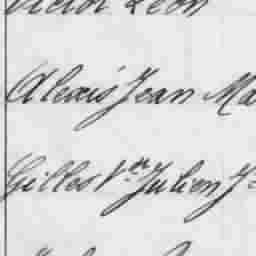 Victor Léon
Alexis Jean Ma
Gilles Vor Julien J